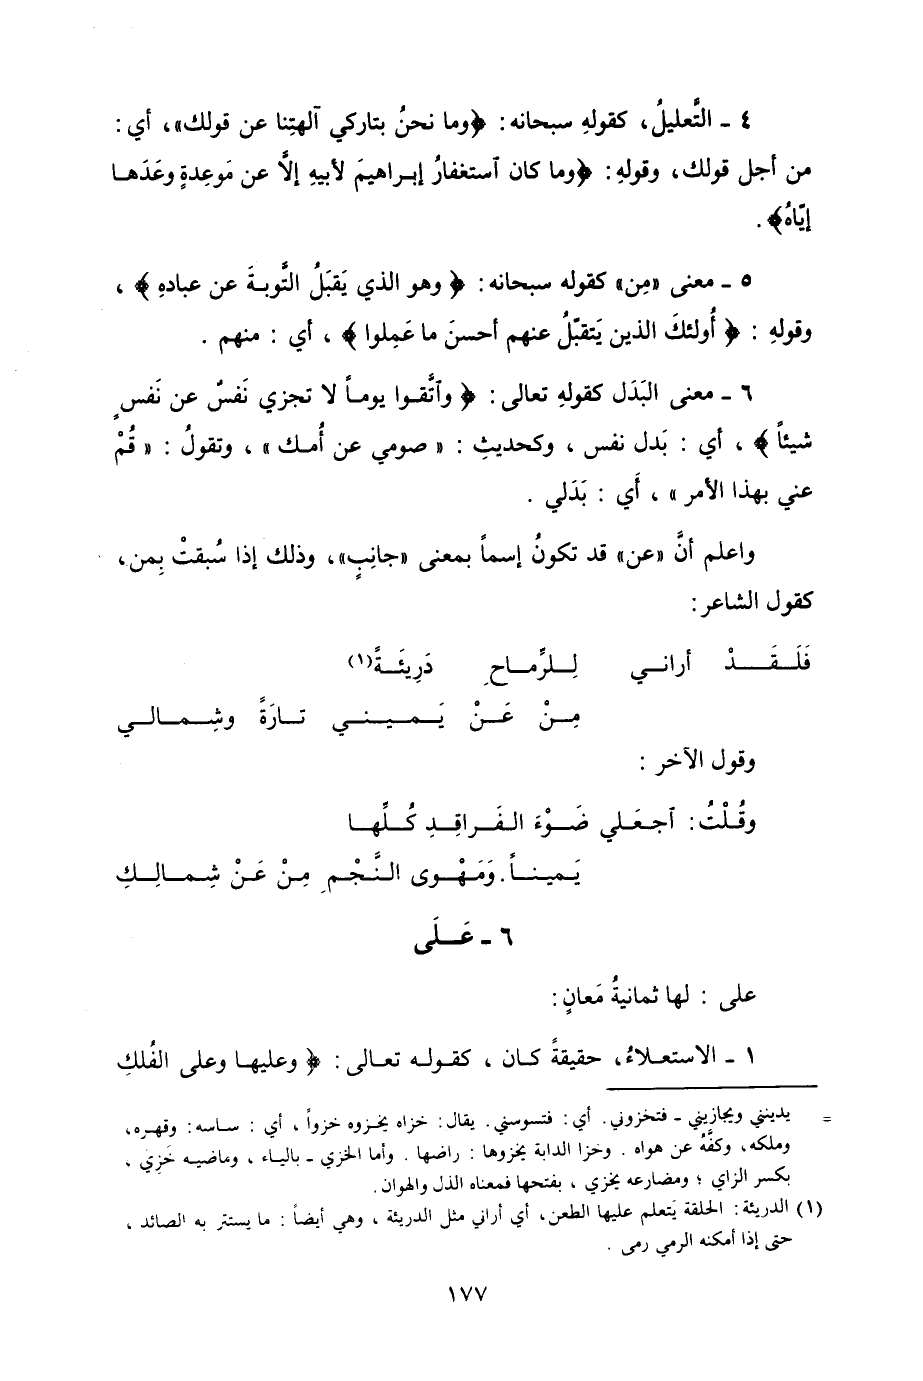 ٤ ـ التَّعليلُ، كقولهِ سبحانه: ﴿وما نحنُ بتاركي آلهتِنا عن قولك﴾، أي:
من أجل قولك، وقولهِ: ﴿وما كان ٱستغفارُ إبراهيمَ لأبيهِ إلاَّ عن مَوعِدةٍ وعَدَها
إيّاهُ﴾.
٥ ـ معنى «مِن» كقوله سبحانه: ﴿وهو الذي يَقبَلُ التَّوبةَ عن عبادهِ﴾،
وقولهِ: ﴿أُولئكَ الذين يَتقبّلُ عنهم أحسنَ ما عَمِلوا﴾، أي: منهم.
٦ ـ معنى البَدَل كقولهِ تعالى: ﴿وٱتَّقوا يوماً لا تجزي نَفسٌ عن نَفسٍ
شيئاً﴾، أي: بَدل نفس، وكحديثِ: «صومي عن أُمك»، وتقولُ: «قُمْ
عني بهذا الأمر»، أَي: بَدَلي.
واعلم أنَّ «عن» قد تكونُ إسماً بمعنى «جانِبٍ»، وذلك إذا سُبقتْ بِمن،
كقول الشاعر:
فَلَقَدْ أراني لِلرِّماحِ دَرِيئَةً(١)
مِنْ عَنْ يَميني تارَةً وشِمالي
وقول الآخر:
وقُلْتُ: ٱجعَلي ضَوْءَ الفَراقِدِ كُلِّها
يَميناً. وَمَهْوى النَّجْمِ مِنْ عَنْ شِمالِكِ
٦ ـ عَلَى
على: لها ثمانيةُ مَعانٍ:
١ ـ الاستعلاءُ، حقيقةً كان، كقوله تعالى: ﴿وعليها وعلى الفُلكِ
= يدينني ويجازيني ـ فتخزوني. أي: فتسوسني. يقال: خزاه يخزوه خزواً، أي: ساسه: وقهره،
وملكه، وكفَّهُ عن هواه. وخزا الدابة يخزوها: راضها. وأما الخزي ـ بالياء، وماضيه خَزِيَ،
بكسر الزاي؛ ومضارعه يخزي، بفتحها فمعناه الذل والهوان.
(١) الدريئة: الحلقة يَتعلم عليها الطعن، أي أراني مثل الدريئة، وهي أيضاً: ما يستتر به الصائد،
حتى إذا أمكنه الرمي رمى.
١٧٧